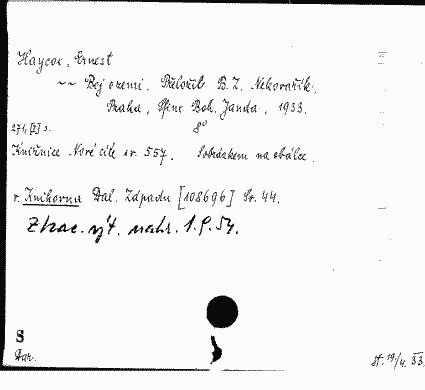 Haycox, Ernest
~~ Boj o zemi. Přeložil B. Z. Nekovařík.
Praha, Spinc. Boh. Janda, 1933.
274 [I] s. 8°
Knižnice Nové cíle sv. 557. S obrázkem na obálce.
r. Knihovna Dal. Západu [108696] Sv. 44.
Ztrac. výt. nahr. 1.9.54.
S
Dar. st. 19/4. 33